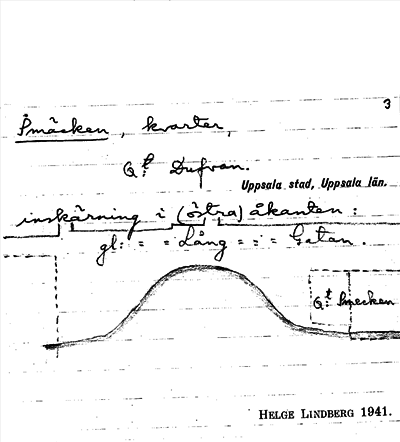 3
Åmäcken, kvarter,
Q:t Dufvan.
Uppsala stad, Uppsala län.
inskärning i (östra) åkanten:
gl: = = Lång = = : Gatan.
Q:t
HELGE LINDBERG 1941.